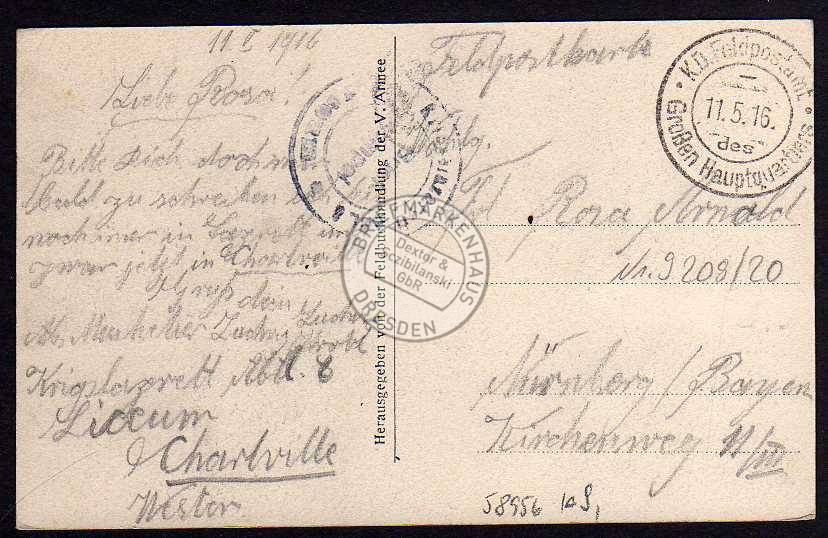 11. 5 1916
Liebe Rosa!
Bitte Dich doch mir
bald zu schreiben bin
noch imer in Lazarett und
zwar jetzt in Charlville
Gruß dein
Ludwig
Abs. Ludwig
Krigslazarett Abtl. 8
Liceum
Charlville
Westen
Herausgegeben von der Feldbuchhandlung der V. Armee
Feldpostkarte
K.D. Feldpostamt
11.5.16.
des
Großen Hauptquartiers
Frl Rosa Arnold
Nr. 9208/20
Nürnberg / Bayern
Kirchenweg 11/III
58956
BRIEFMARKENHAUS
Dexter &
GbR
DRESDEN